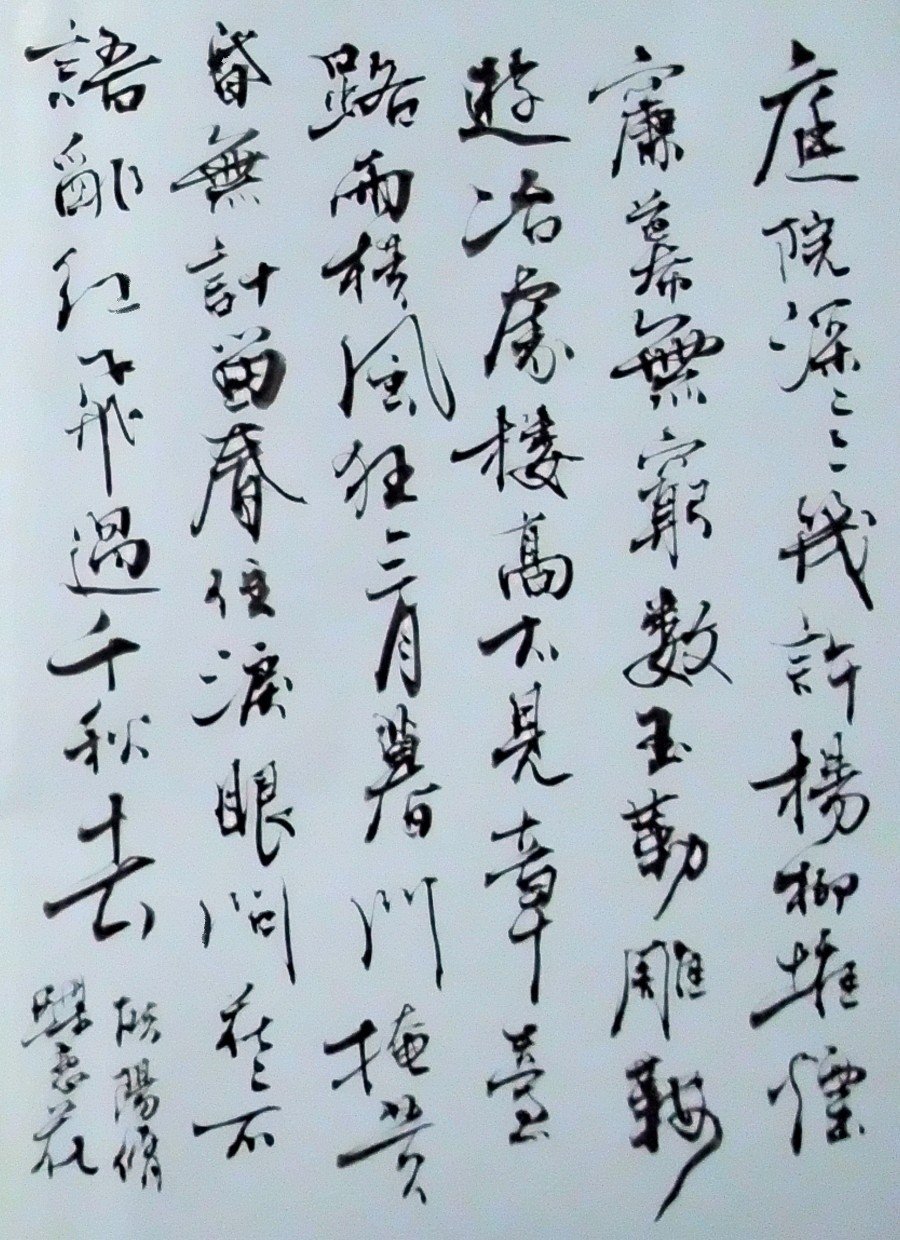 庭院深〻〻幾許楊柳堆煙
簾幕無窮數玉勒雕鞍
遊冶處樓高不見章臺
路雨橫風狂三月暮門掩黃
昏無計留春住淚眼問花〻不
語亂紅飛過千秋去
歐陽修
蝶戀花